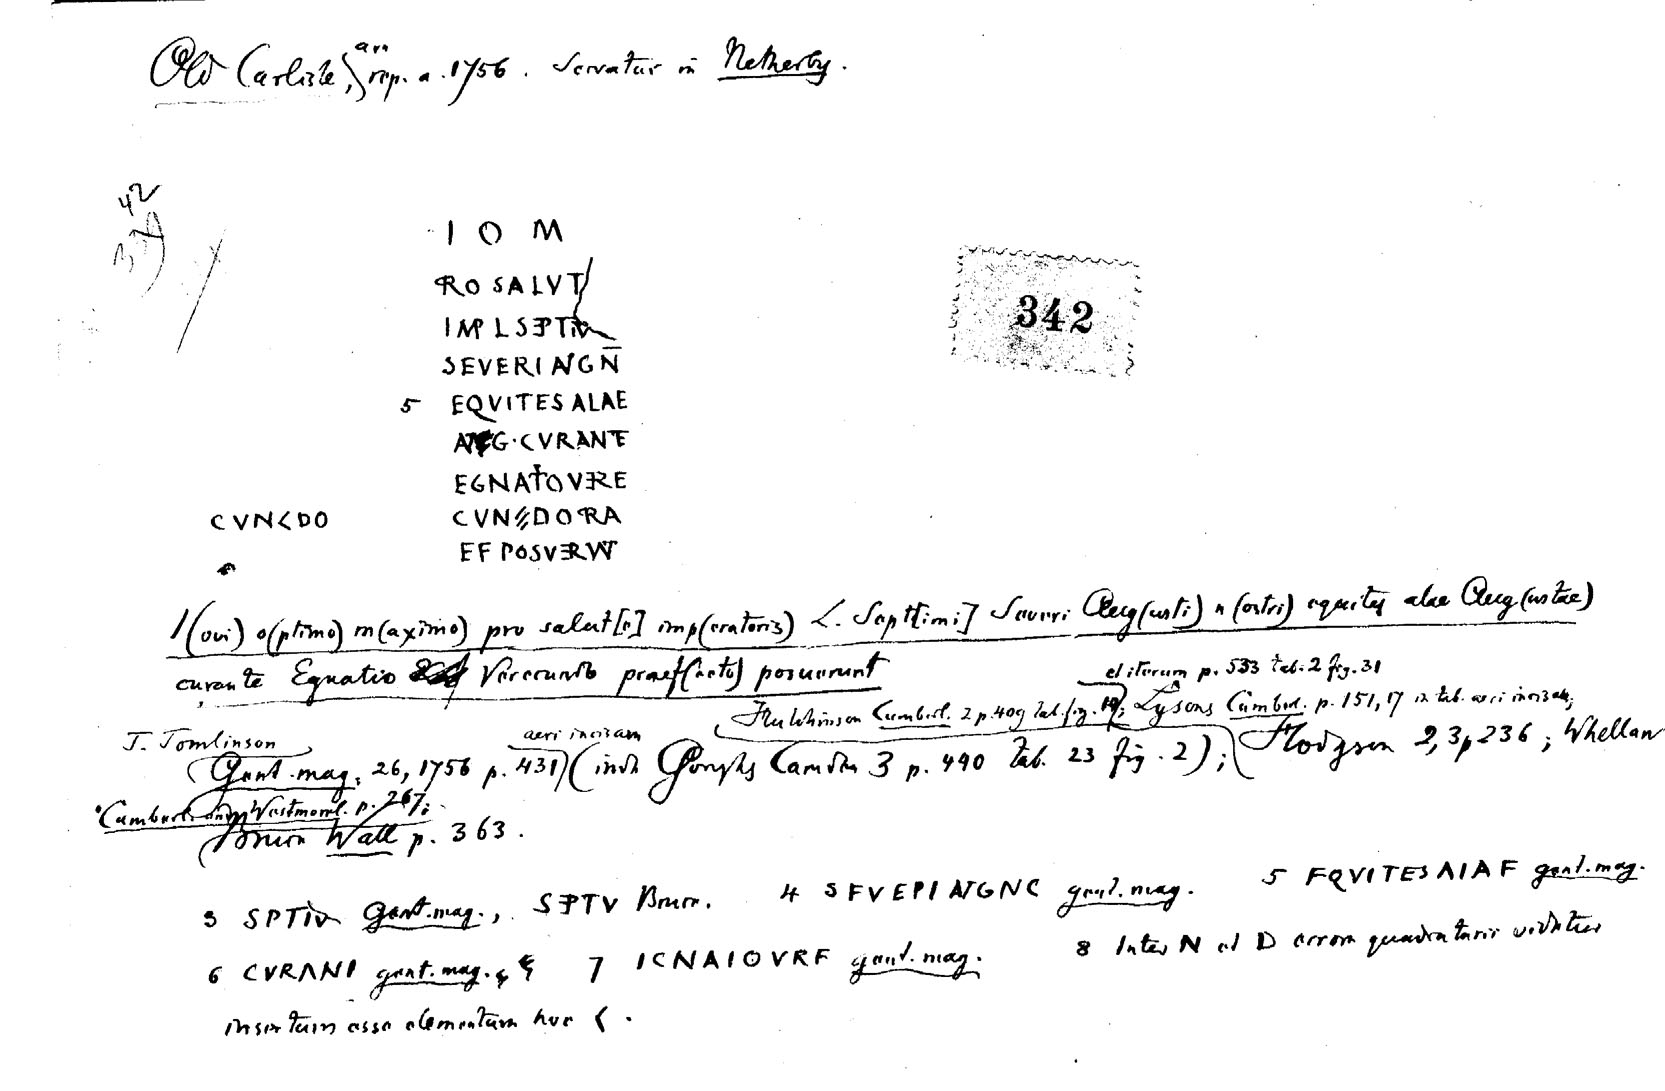 Old Carlisle, ara rep. a. 1756. Servatur in Netherby.
42
I O M
ROSALVT
342
IMPLSEPTIV
SEVERIAVGN
5 EQVITESALAE
AVG·CVRANTE
EGNATIOVERE
CVN<DO CVN DORA
EFPOSVERVNT
I(ovi) o(ptimo) m(aximo) pro salut[e] imp(eratoris) L. Sept[imi] Severi Aug(usti) n(ostri) equites alae Aug(ustae)
curante Egnatio Verecundo praef(ecto) posuerunt
et iterum p. 533 tab. 2 fig. 31
Hutchinson Cumberl. 2 p. 409 tab. fig. ; Lysons Cumberl. p. 151, 17 in tab. aeri incisam;
J. Tomlinson aeri incisam
(Gent. mag. 26, 1756 p. 431) (inde Goughs Camden 3 p. 440 tab. 23 fig. 2); Hodgson 2,3 p 236; Whellan
Cumberl. and Westmorel. p. 267;
Bruce Wall p. 363.
3 SPTIV Gent. mag., SEPTV Bruce. 4 SFVEPIAVGNC gent. mag. 5 FQVITESAIAF gent. mag.
6 CVRANI gent. mag. 7 ICNAIOVRF gent. mag. 8 Inter N et D errore quadratarii videtur
insertum esse elementum hoc <.